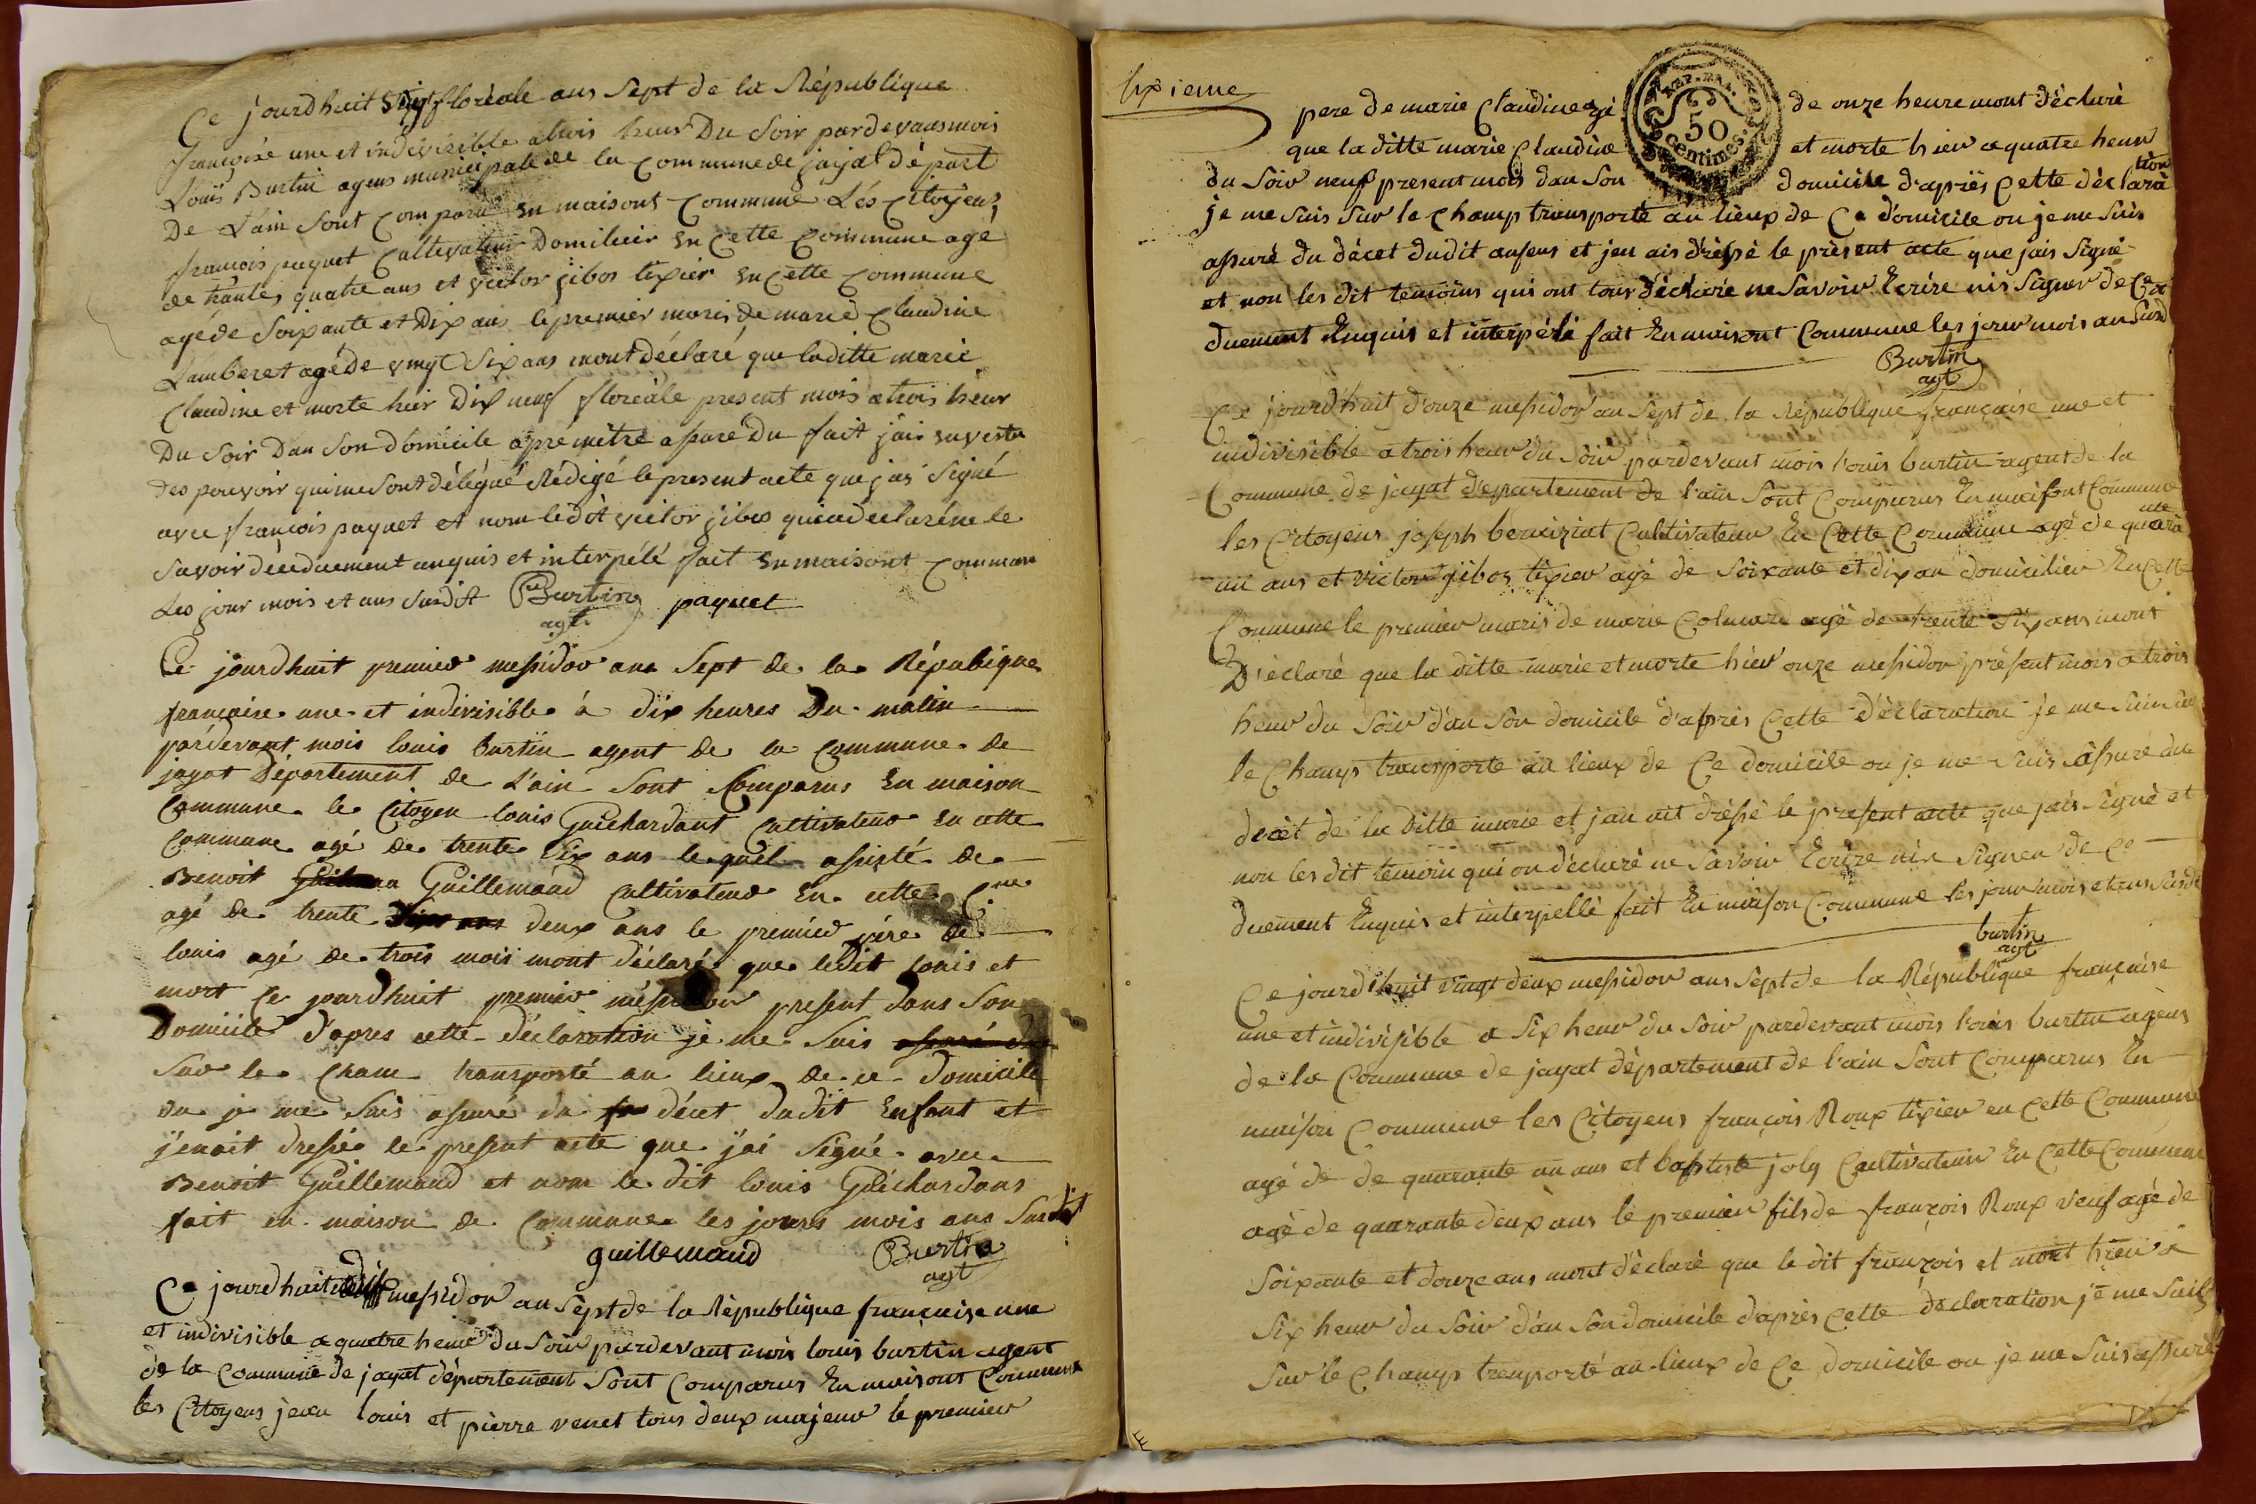 Ce jourdhuit vingt floréale ans Sept de la République
françoise une et indivisible a trois heur Du Soir pardevans mois
Louis Burtin agens municipale de la Commune de jayat départ
De L'ain Sont comparu en maisont Commune Lés Citoyens
francois paquet Cultivateur Domiliciir en Cette Commune agé
de trantes quatre ans et victor jibos tixier en Cette Commune
agé de Soixante et Dix ans le premier maris de marie Claudine
Lamberet agé de vingt Six ans mont déclaré que laditte marie
Claudine et morte hier Dix neuf floréale present mois a trois heur
Du Soir Dan Son domicile apré mètre assuré Du fait jais en vertu
des pouvoir qui me Sont délégué Rédigé le present acte que jais Signé
avec françois paquet et nom ledit victor jibos qui a declaré ne le
Savoir de ce duement anquis et interpélé fait en maisont Commune
Les jour mois et ans Susdit Burtin paquet
agt
Ce jourdhuit premier messidor ans Sept de la Répubique
française une et indivisible à dix heures Du matin
pardevant mois louis burtin agent de la Commune de
jayat Département de L'ain Sont Comparus En maison
Commune le Citoyen louis Guichardant Cultivateur En cette
Commune agé de trente Six ans lequel assisté de
Benoit Guillemaud Cultivateur En cette Cne
agé de trente deux ans le premier père de
louis agé de trois mois mont déclaré que ledit louis et
mort Ce jourdhuit premier messidor present dans Son
Domicile d'apres cette déclaration je me Suis
Sur le Cham transporté au lieux de ce Domicile
ou je me Suis assuré du décet dudit Enfant et
j'enait dressé le present acte que j'ai Signé avec
Benoit Guillemaud et nom le dit louis Guichardans
fait en maison de Commune les jours mois ans Susdit
guillemaud Burtin
agt
Ce jourdhuit dix messidor an Sept de la République française une
et indivisible a quatre heur du Soir pardevant mois louis burtin agent
de la Commune de jayat département Sont Comparus En maisont Commune
les Citoyens jean louis et pierre venet tous deux majeur le premier
Sixieme
pere de marie Claudine agé de onze heure mont déclaré
REP. FRA.
50
centimes
que la ditte marie Claudine et morte hier a quatre heur
du Soir neuf present mois dan Son domicile d'apriès Cette déclara
tion
je me Suis Sur le Champ transporté au lieux de Ce domicile ou je me Suis
assuré du décet dudit anfens et jen ais dressé le présent acte que jais Signé
et non les dit temoins qui ont tous déclaré ne Savoir Ecrire nis Signer de Ce
duement Enquis et interpélé fait En maisont Commune les jour mois an Susd
Burtin
agt
Ce jourdhuit d'ouze messidor an Sept de la République française une et
indivisible a trois heur du Soir pardevant mois louis burtin agent de la
Commune de jayat département de l'ain Sont Comparus En maisont Commune
les Citoyens joseph benciziat Cultivateur En Cette Commune agé de quara
nte
un ans et victor jibos tixier agé de Soixante et dix an domicilier En Cette
Commune le premier maris de marie Colmare agé de trente Six ans mont
Déclaré que la ditte marie et morte hier onze messidor présent mois a trois
heur du Soir dan Son domicile d'après Cette déclaration je me Suis Sur
le Champ transporté au lieux de Ce domicile ou je me Suis assuré du
decèt de la ditte marie et jan ait dréssé le présent acte que jais Signé et
non les dit temoin qui on déclaré ne Savoir Ecrire nis Signer de Ce
duement Enquis et interpellé fait En maison Commune les jour mois et ans Susdit
burtin
agt
Ce jourdhuit vingt deux messidor ans Sept de la République française
une et indivisible a Six heur du Soir pardevant mois louis burtin agens
de la Commune de jayat département de l'ain Sont Comparus En
maison Commune les Citoyens françois Roux tixier en Cette Commune
agé de de quarante un ans et baptiste joly Cultivateur En Cette Commune
agé de quarante deux ans le premier fils de françois Roux veuf agé de
Soixante et douze ans mont déclaré que le dit françois et mort hier a
Six heur du Soir dan Son domicile d'après Cette déclaration je me Suis
Sur le Champ tranporté au lieux de Ce domicile ou je me Suis assuré